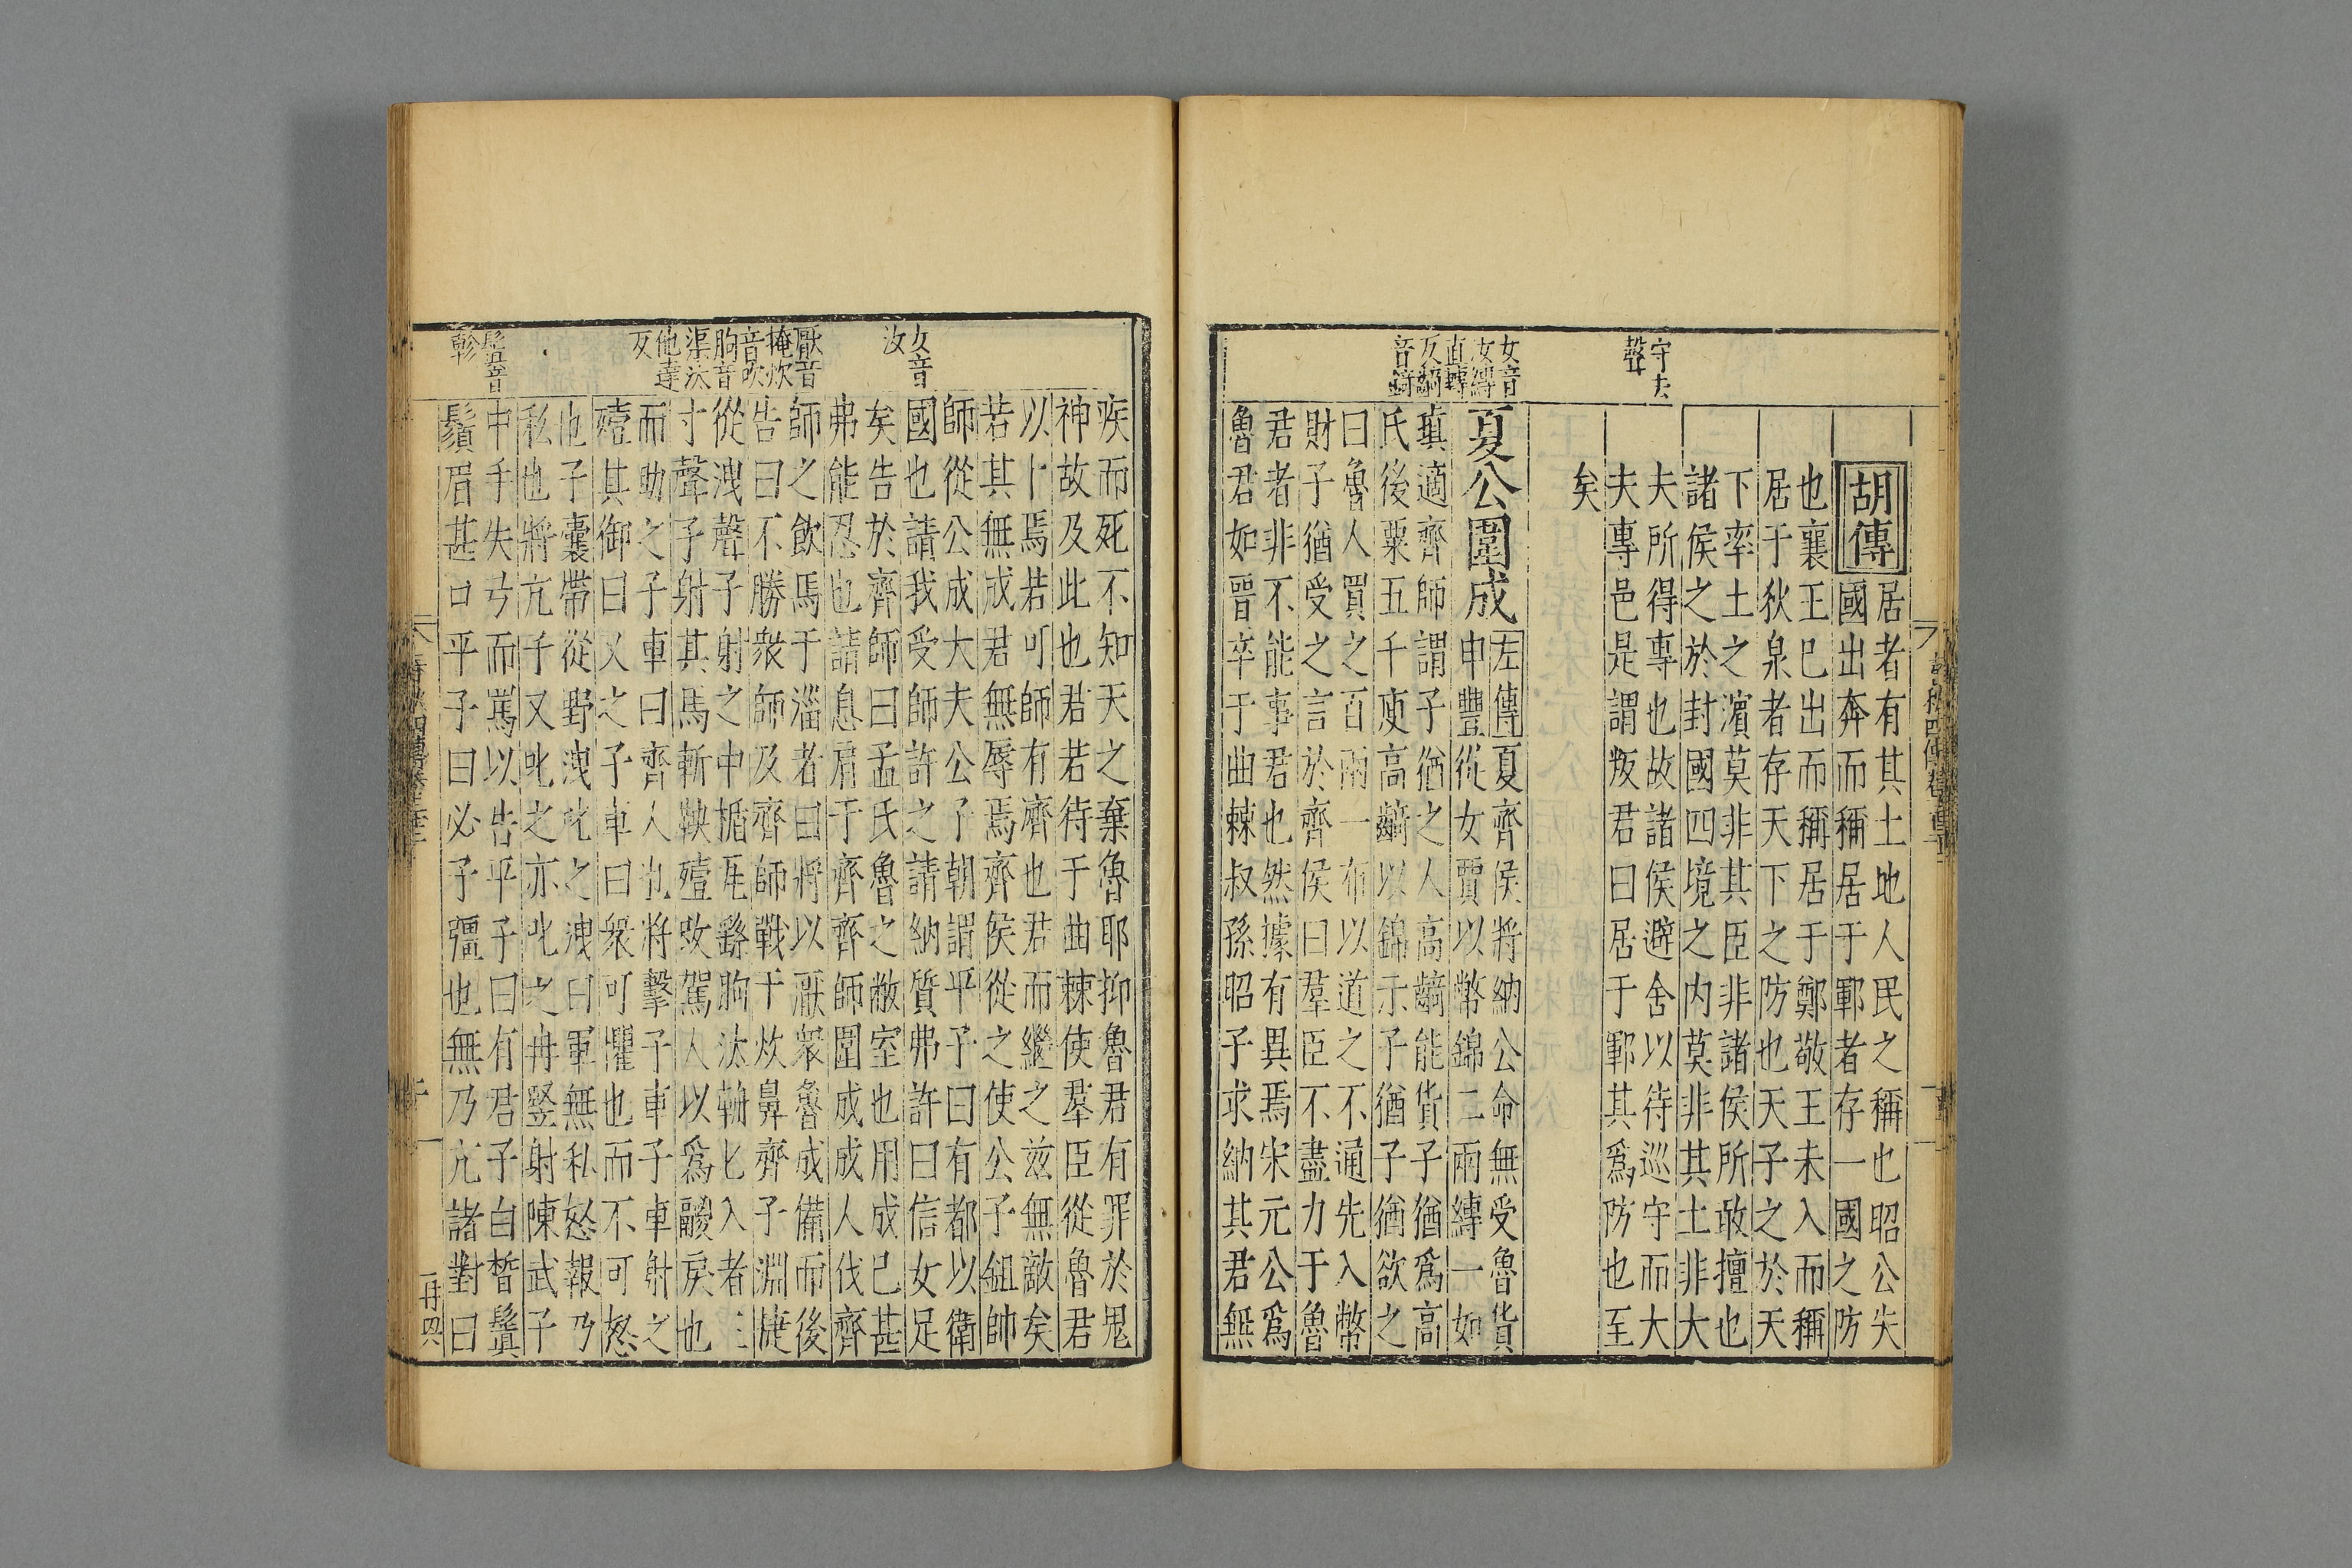 守去
聲
女音
汝縛
直轉
反齮
音錡
胡傳
居者有其土地人民之稱也昭公失
國出奔而稱居于鄆者存一國之防
也襄王已出而稱居于鄭敬王未入而稱
居于狄泉者存天下之防也天子之於天
下率土之濱莫非其臣非諸侯所敢擅也
諸侯之於封國四境之内莫非其土非大
夫所得專也故諸侯避舍以待巡守而大
夫專邑是謂叛君曰居于鄆其爲防也至
矣
夏公圍成
左傳夏齊侯將納公命無受魯貨
申豐從女賈以幣錦二兩縳一如
瑱適齊師謂子猶之人高齮能貨子猶爲高
氏後粟五千庾高齮以錦示子猶子猶欲之
曰魯人買之百兩一布以道之不通先入幣
財子猶受之言於齊侯曰羣臣不盡力于魯
君者非不能事君也然據有異焉宋元公爲
魯君如晉卒于曲棘叔孫昭子求納其君無
女音
汝
厭音
掩炊
音吹
朐音
渠汰
他達
反
鬒音
軫
疾而死不知天之棄魯耶抑魯君有罪於鬼
神故及此也君若待于曲棘使羣臣從魯君
以卜焉若可師有濟也君而繼之兹無敵矣
若其無成君無辱焉齊侯從之使公子鉏帥
師從公成大夫公孫朝謂平子曰有都以衛
國也請我受師許之請納質弗許曰信女足
矣告於齊師曰孟氏魯之敝室也用成已甚
弗能忍也請息肩于齊齊師圍成成人伐齊
師之飲馬于淄者曰將以厭衆魯成備而後
告曰不勝衆師及齊師戰于炊鼻齊子淵捷
從洩聲子射之中楯瓦繇朐汰輈匕入者三
寸聲子射其馬斬鞅殪改駕人以爲鬷戾也
而助之子車曰齊人也將擊子車子車射之
殪其御曰又之子車曰衆可懼也而不可怒
也子囊帶從野洩叱之洩曰軍無私怒報乃
私也將亢子又叱之亦叱之冉豎射陳武子
中手失弓而罵以告平子曰有君子白皙鬒
鬚眉甚口平子曰必子彊也無乃亢諸對曰